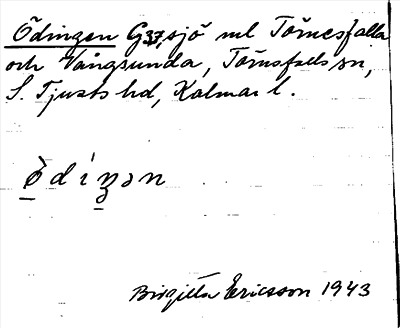 Ödingen G37, sjö ml Törnesfalla
och Vångsunda, Törnsfalls sn,
S. Tjusts hd, Kalmar l.
Birgitta Ericsson 1943